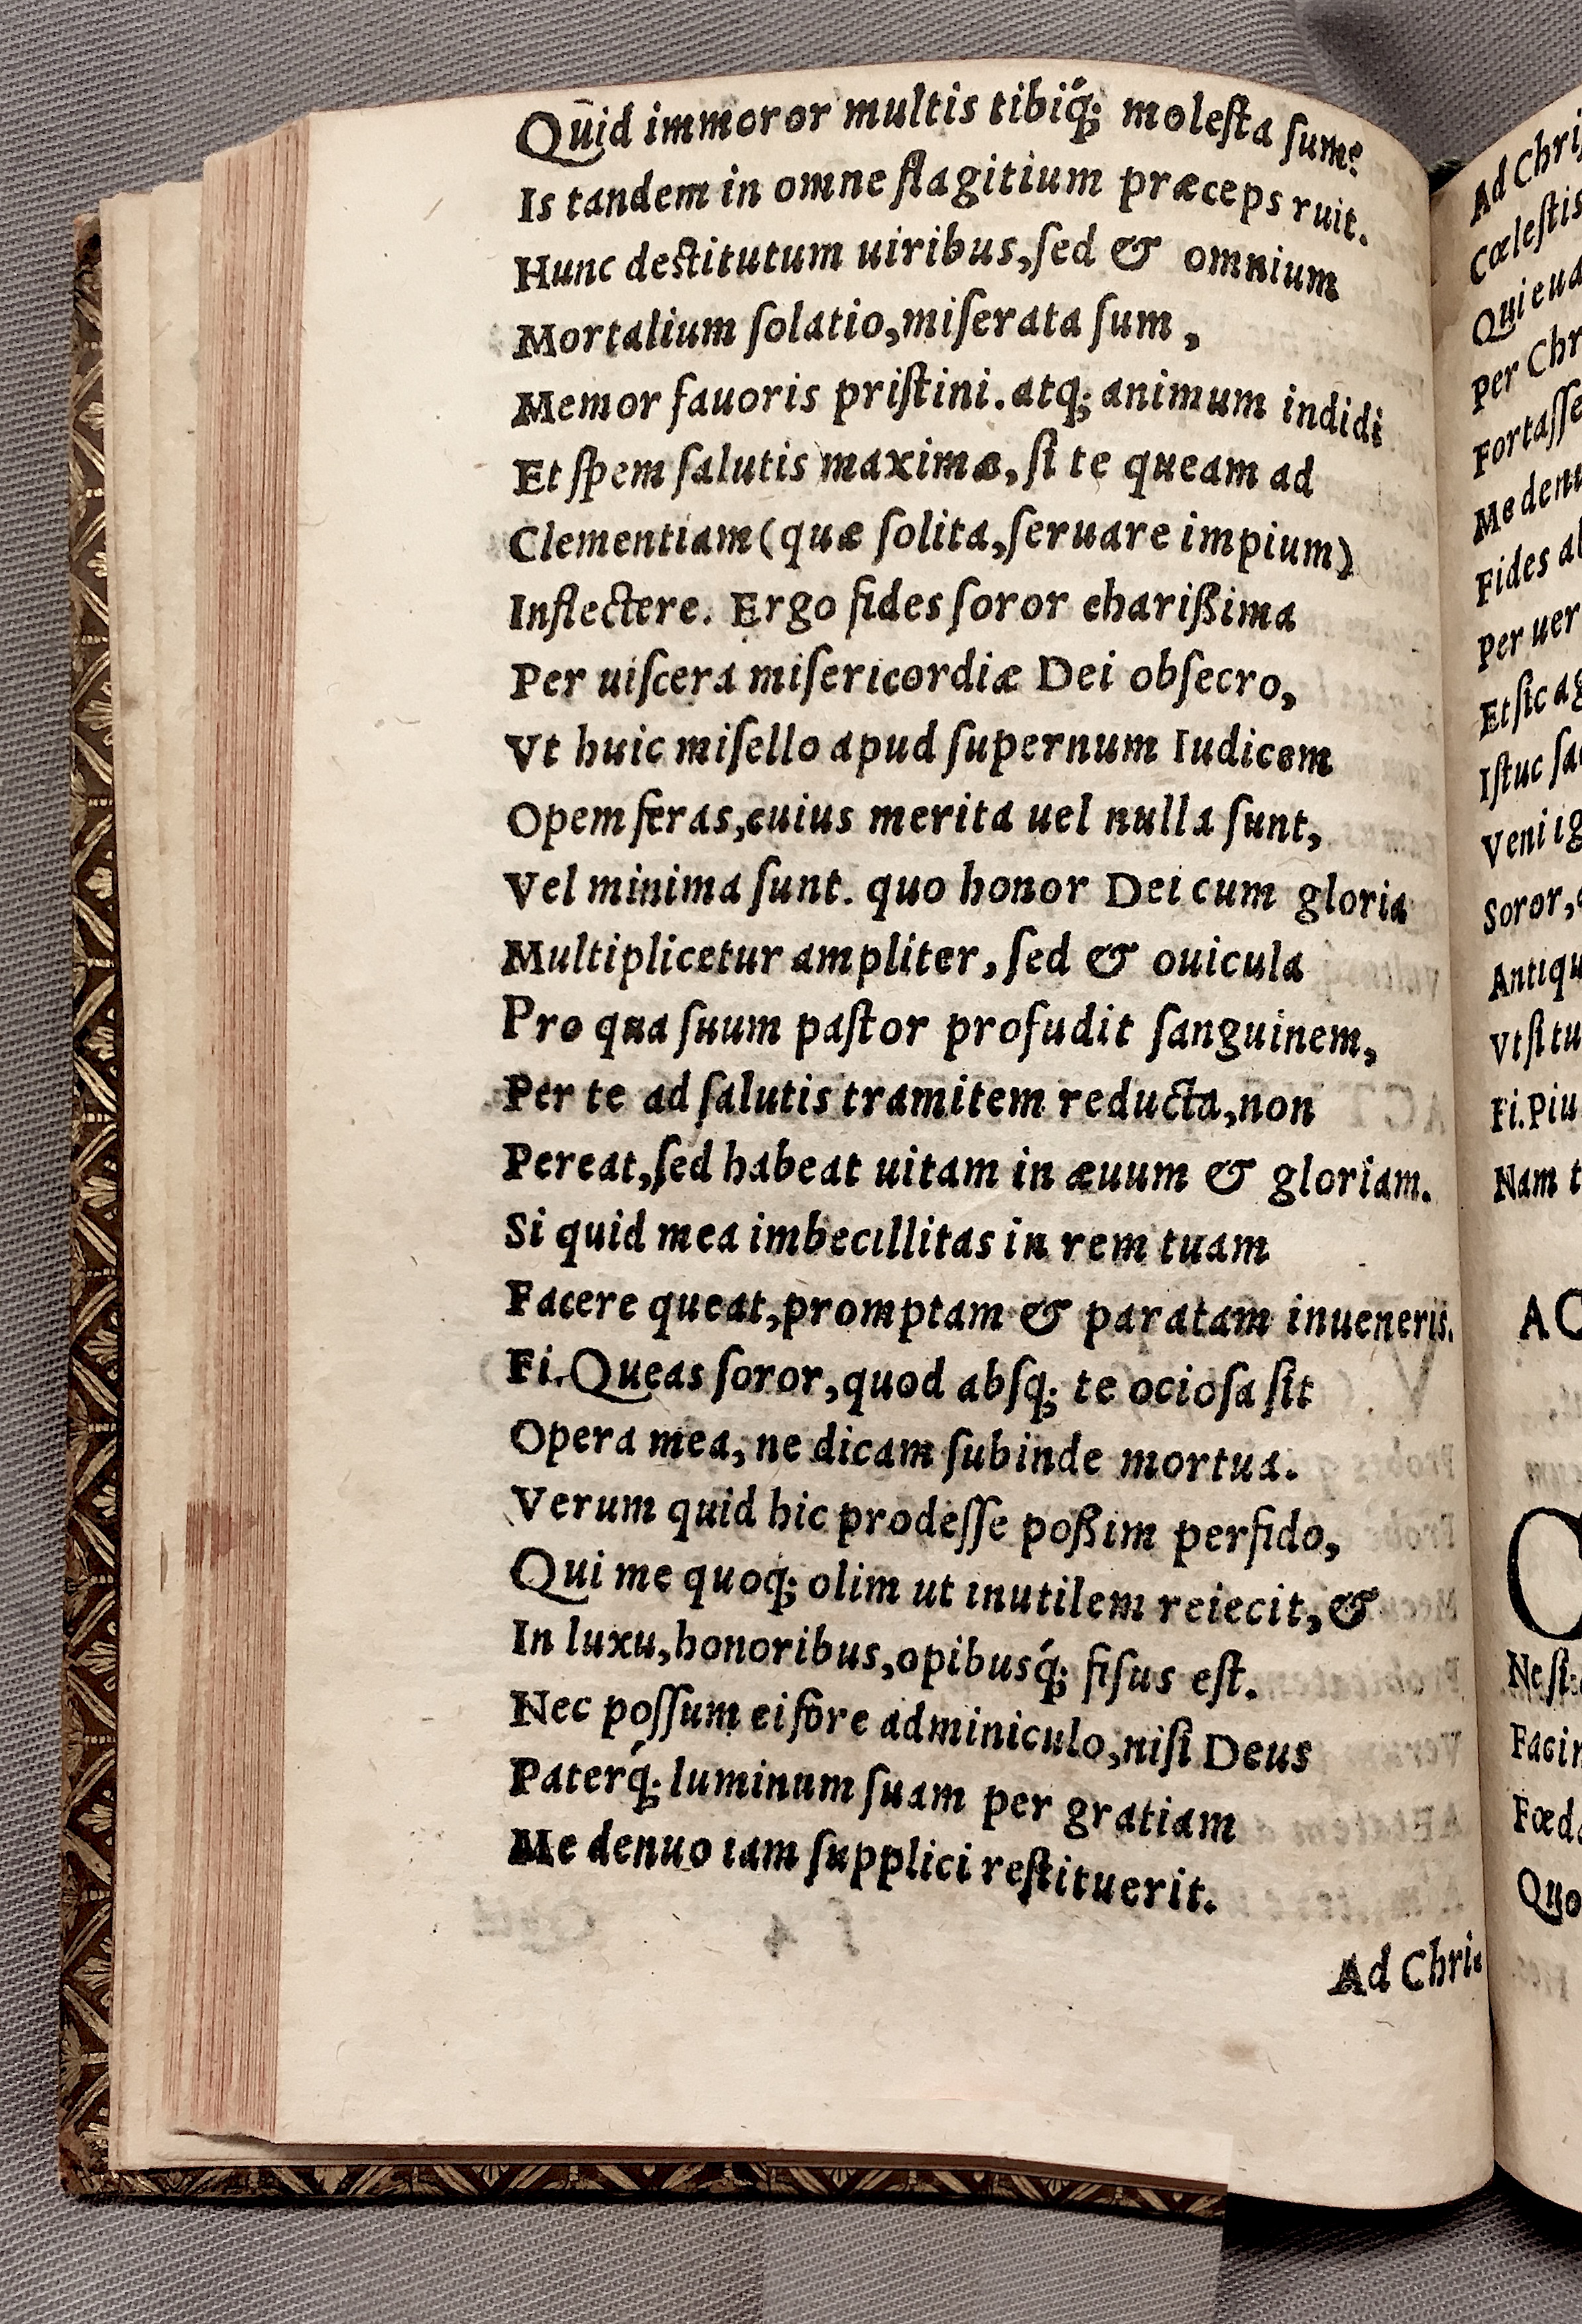 Quid immoror multis tibiq́; molesta sum?
Is tandem in omne flagitium præceps ruit.
Hunc destitutum uiribus, sed & omnium
Mortalium solatio, miserata sum,
Memor fauoris pristini. atq; animum indidi
Et spem salutis maximæ, si te queam ad
Clementiam (quæ solita, seruare impium)
Inflectere. Ergo fides soror charißima
Per uiscera misericordiæ Dei obsecro,
Vt huic misello apud supernum Iudicem
Opem feras, cuius merita uel nulla sunt,
Vel minima sunt. quo honor Dei cum gloria
Multiplicetur ampliter, sed & ouicula
Pro qua suum pastor profudit sanguinem,
Per te ad salutis tramitem reducta, non
Pereat, sed habeat uitam in æuum & gloriam.
Si quid mea imbecillitas in rem tuam
Facere queat, promptam & paratam inueneris.
Fi. Queas soror, quod absq; te ociosa sit
Opera mea, ne dicam subinde mortua.
Verum quid hic prodesse poßim perfido,
Qui me quoq; olim ut inutilem reiecit, &
In luxu, honoribus, opibusq́; fisus est.
Nec possum ei fore adminiculo, nisi Deus
Paterq́; luminum suam per gratiam
Me denuo iam supplici restituerit.
Ad Chri-
Ad Chri
Cœlestis
Qui eua
Per Chr
Fortasse
Me denu
Fides al
Per uer
Et sic ag
Istuc sa
Veni ig
Soror,
Antiqu
Vt si tu
Fi. Piu
Nam t
AC
C
Ne si
Facin
Fœd
Quo